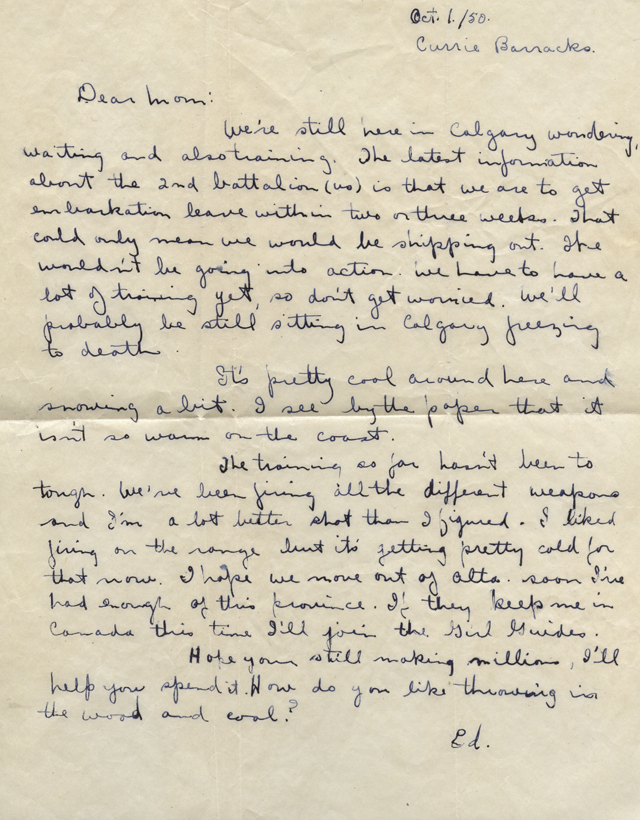 Oct. 1./50.
Currie Barracks.
Dear Mom:
We're still here in Calgary wondering,
waiting and also training. The latest information
about the 2nd battalion (us) is that we are to get
embarkation leave within two or three weeks. That
could only mean we would be shipping out. The
wouldn't be going into action. We have to have a
lot of training yet, so don't get worried. We'll
probably be still sitting in Calgary freezing
to death.
It's pretty cool around here and
snowing a bit. I see by the paper that it
isn't so warm on the coast.
The training so far hasn't been to
tough. We've been firing all the different weapons
and I'm a lot better shot than I figured. I liked
firing on the range but it's getting pretty cold for
that now. I hope we move out of Alta. soon I've
had enough of this province. If they keep me in
Canada this time I'll join the Girl Guides.
Hope your still making millions, I'll
help you spend it. How do you like throwing in
the wood and coal?
Ed.